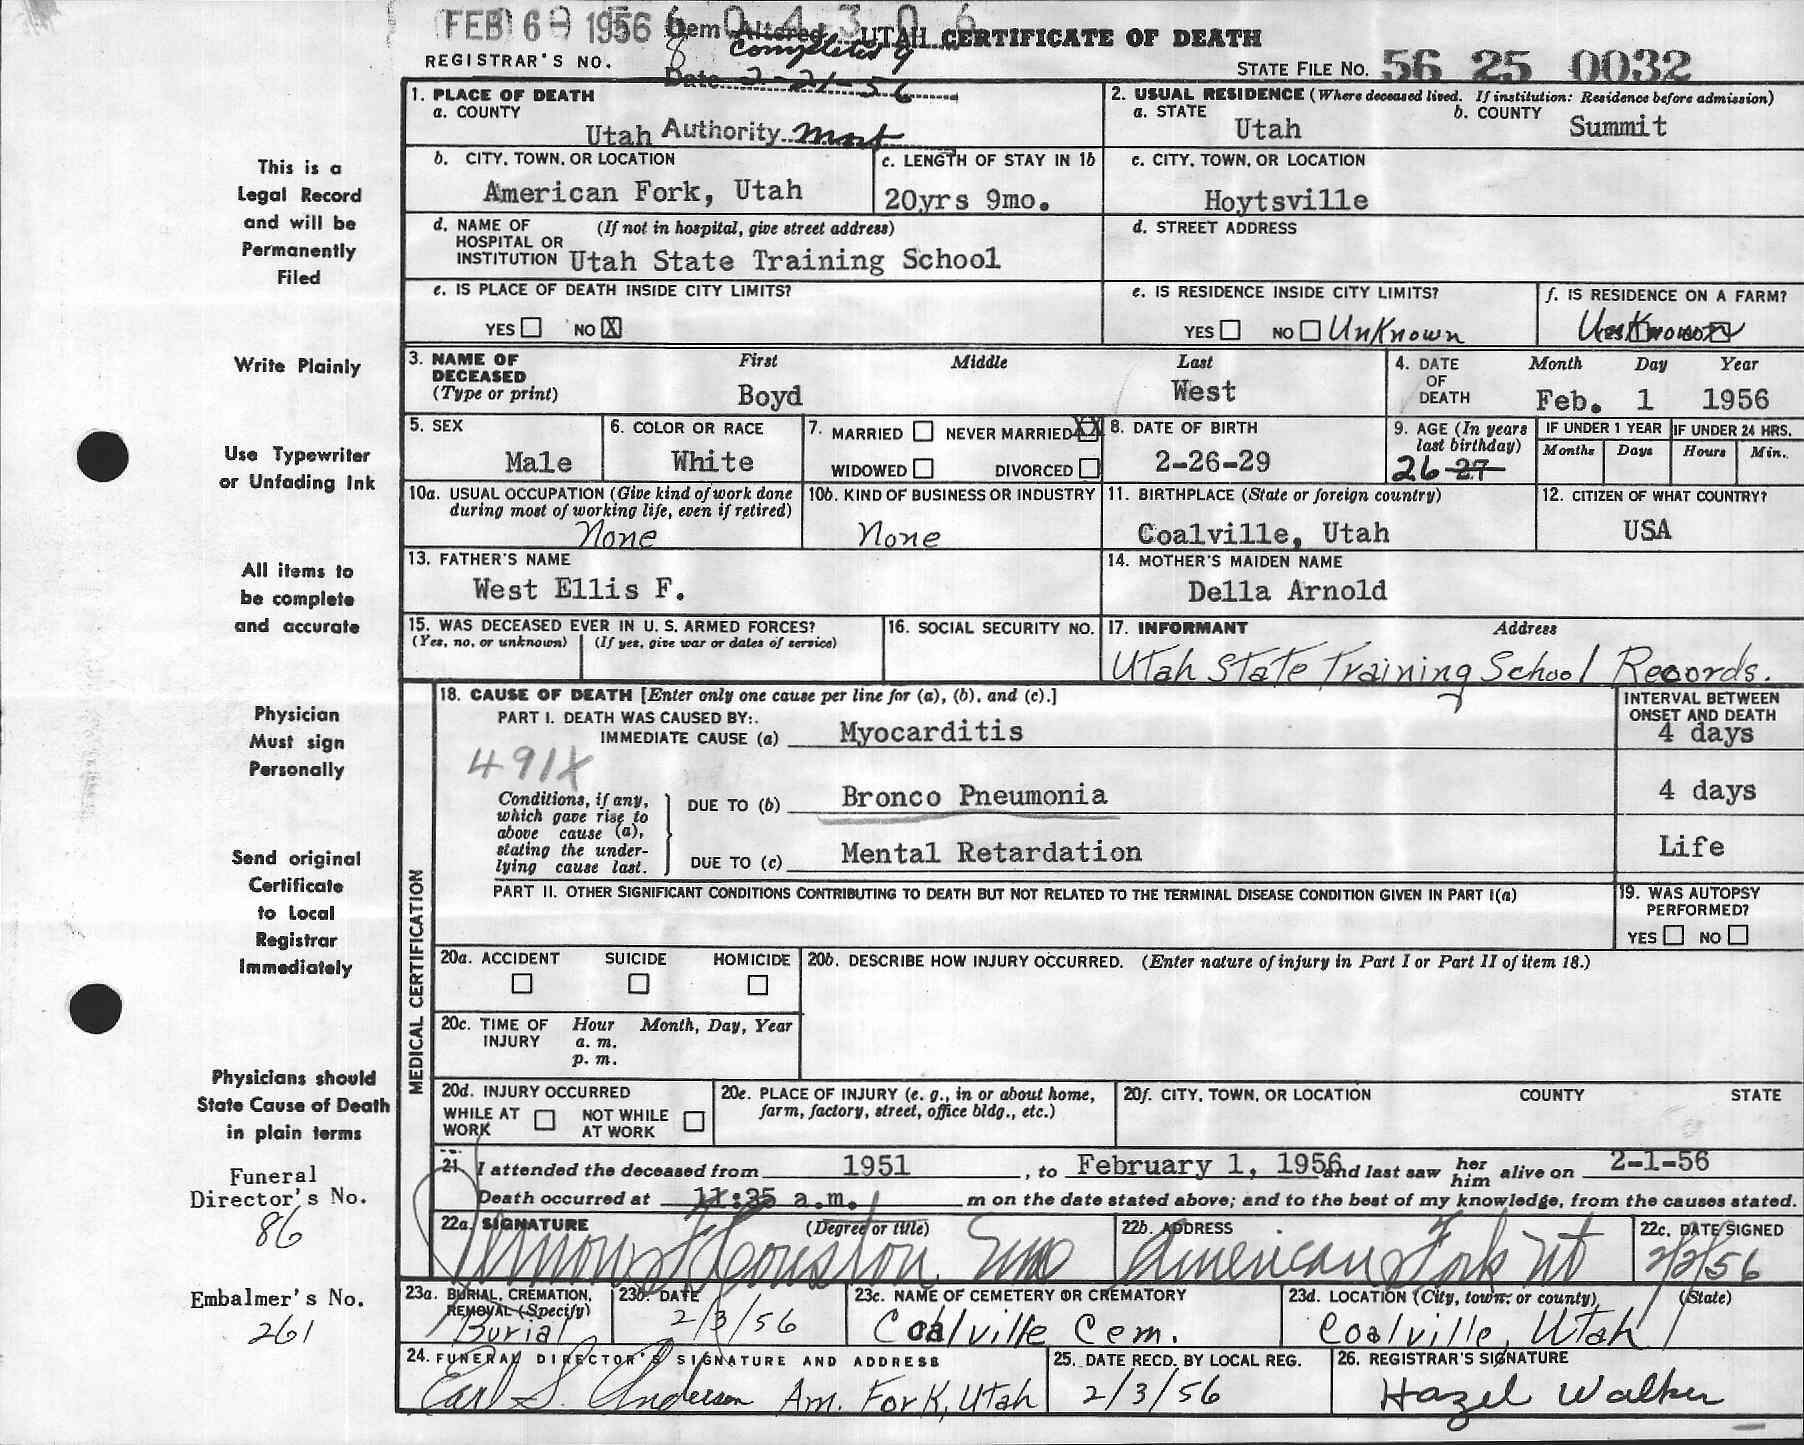 FEB 6 1956
Item Altered 8
UTAH CERTIFICATE OF DEATH
Completed 9
REGISTRAR'S NO.
Date 2-21-56
STATE FILE NO. 56 25 0032
1. PLACE OF DEATH
a. COUNTY
Utah Authority Mort
2. USUAL RESIDENCE (Where deceased lived. If institution: Residence before admission)
a. STATE
Utah
b. COUNTY
Summit
b. CITY, TOWN, OR LOCATION
American Fork, Utah
c. LENGTH OF STAY IN 1b
20yrs 9mo.
c. CITY, TOWN, OR LOCATION
Hoytsville
d. NAME OF HOSPITAL OR INSTITUTION (If not in hospital, give street address)
Utah State Training School
d. STREET ADDRESS
e. IS PLACE OF DEATH INSIDE CITY LIMITS?
YES NO X
e. IS RESIDENCE INSIDE CITY LIMITS?
YES NO Unknown
f. IS RESIDENCE ON A FARM?
Unknown
3. NAME OF DECEASED (Type or print)
First Middle Last
Boyd West
4. DATE OF DEATH
Month Day Year
Feb. 1 1956
5. SEX
Male
6. COLOR OR RACE
White
7. MARRIED NEVER MARRIED XX
WIDOWED DIVORCED
8. DATE OF BIRTH
2-26-29
9. AGE (In years last birthday)
26 27
IF UNDER 1 YEAR
Months Days
IF UNDER 24 HRS.
Hours Min.
10a. USUAL OCCUPATION (Give kind of work done during most of working life, even if retired)
None
10b. KIND OF BUSINESS OR INDUSTRY
None
11. BIRTHPLACE (State or foreign country)
Coalville, Utah
12. CITIZEN OF WHAT COUNTRY?
USA
13. FATHER'S NAME
West Ellis F.
14. MOTHER'S MAIDEN NAME
Della Arnold
15. WAS DECEASED EVER IN U. S. ARMED FORCES?
(Yes, no, or unknown) (If yes, give war or dates of service)
16. SOCIAL SECURITY NO.
17. INFORMANT Address
Utah State Training School Records.
18. CAUSE OF DEATH [Enter only one cause per line for (a), (b), and (c).]
PART I. DEATH WAS CAUSED BY:
IMMEDIATE CAUSE (a) Myocarditis
INTERVAL BETWEEN ONSET AND DEATH
4 days
491X
Conditions, if any, which gave rise to above cause (a), stating the underlying cause last.
DUE TO (b) Bronco Pneumonia
4 days
DUE TO (c) Mental Retardation
Life
PART II. OTHER SIGNIFICANT CONDITIONS CONTRIBUTING TO DEATH BUT NOT RELATED TO THE TERMINAL DISEASE CONDITION GIVEN IN PART I(a)
19. WAS AUTOPSY PERFORMED?
YES NO
MEDICAL CERTIFICATION
20a. ACCIDENT SUICIDE HOMICIDE
20b. DESCRIBE HOW INJURY OCCURRED. (Enter nature of injury in Part I or Part II of item 18.)
20c. TIME OF INJURY
Hour Month, Day, Year
a. m.
p. m.
20d. INJURY OCCURRED
WHILE AT WORK NOT WHILE AT WORK
20e. PLACE OF INJURY (e. g., in or about home, farm, factory, street, office bldg., etc.)
20f. CITY, TOWN, OR LOCATION COUNTY STATE
21. I attended the deceased from 1951, to February 1, 1956 and last saw her him alive on 2-1-56
Death occurred at 11:35 a.m. m on the date stated above; and to the best of my knowledge, from the causes stated.
22a. SIGNATURE (Degree or title)
Houston
22b. ADDRESS
American Fork Ut
22c. DATE SIGNED
2/2/56
23a. BURIAL, CREMATION, REMOVAL (Specify)
Burial
23b. DATE
2/3/56
23c. NAME OF CEMETERY OR CREMATORY
Coalville Cem.
23d. LOCATION (City, town, or county) (State)
Coalville, Utah
24. FUNERAL DIRECTOR'S SIGNATURE AND ADDRESS
Earl S. Anderson Am. Fork, Utah
25. DATE RECD. BY LOCAL REG.
2/3/56
26. REGISTRAR'S SIGNATURE
Hazel Walker
This is a
Legal Record
and will be
Permanently
Filed
Write Plainly
Use Typewriter
or Unfading Ink
All items to
be complete
and accurate
Physician
Must sign
Personally
Send original
Certificate
to Local
Registrar
Immediately
Physicians should
State Cause of Death
in plain terms
Funeral
Director's No.
86
Embalmer's No.
261